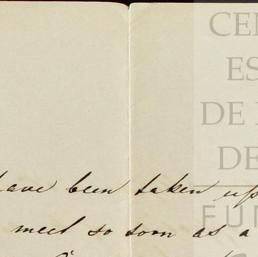 CE
ES
DE
DE
FU
have been taken up
meet so soon as a